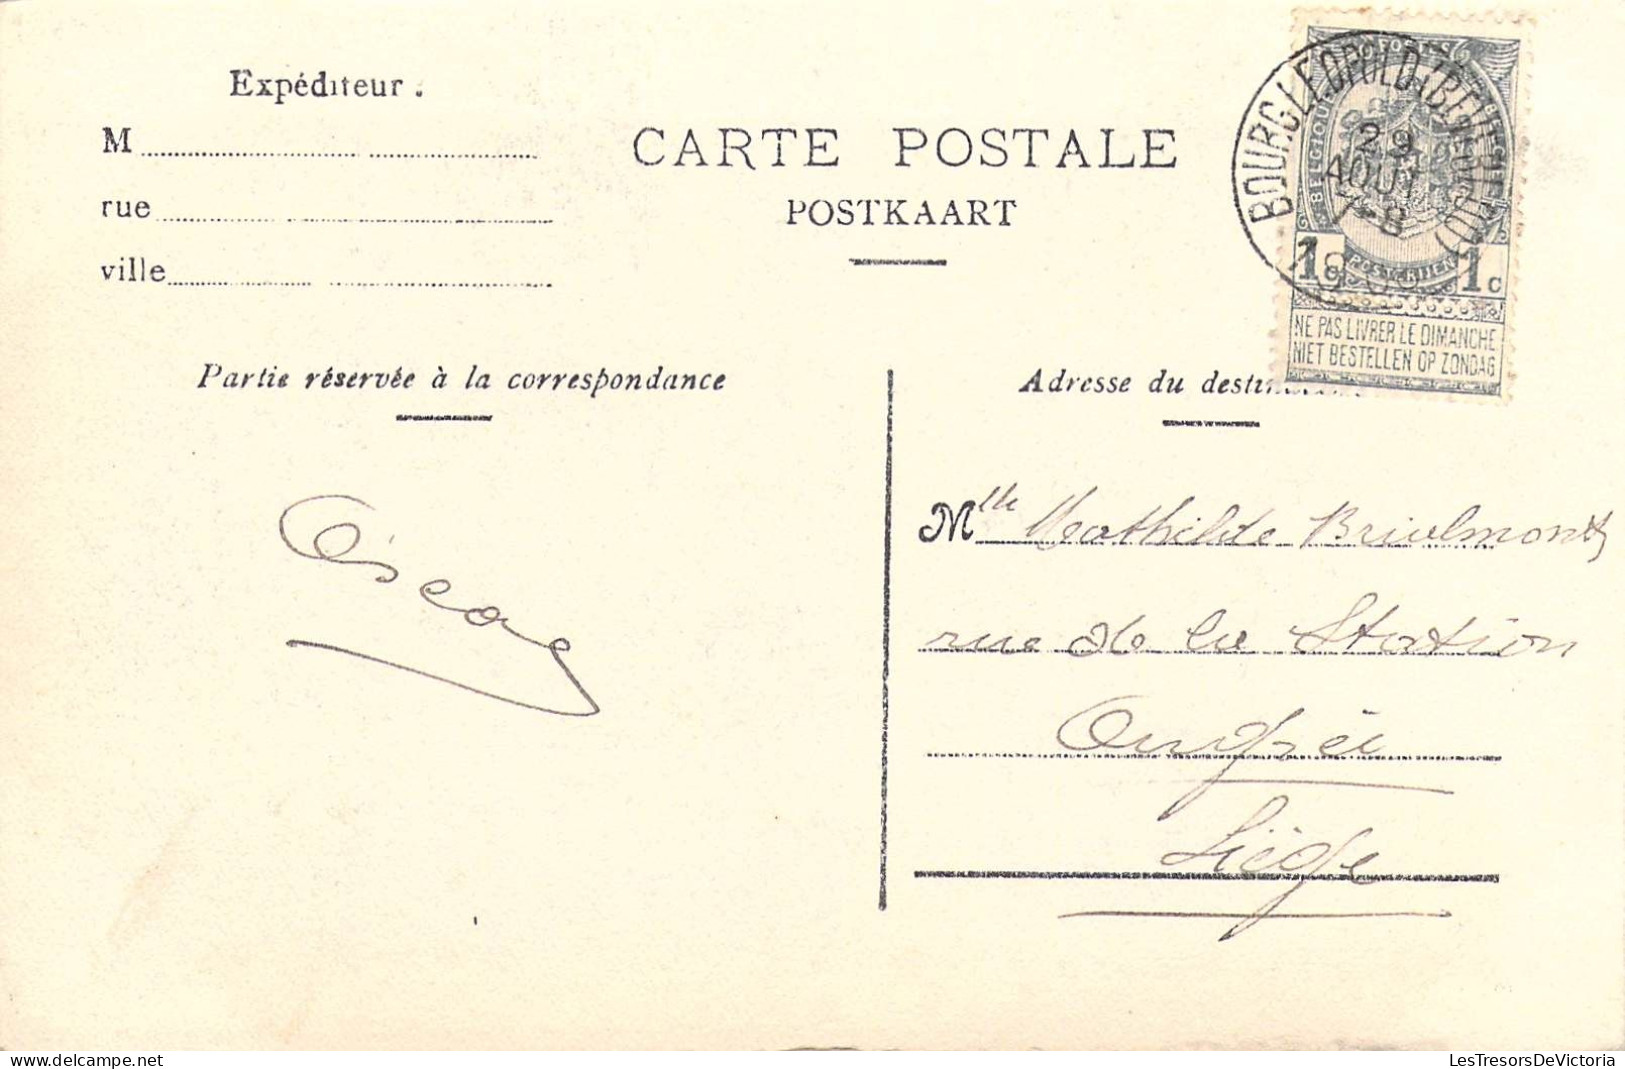 Expéditeur :
M
rue
ville
CARTE POSTALE
POSTKAART
POSTES
BELGIQUE
BOURG-LÉOPOLD (BEVERLOO)
29
AOUT
7-8
POSTERIJEN
1c 1c
NE PAS LIVRER LE DIMANCHE
NIET BESTELLEN OP ZONDAG
Partie réservée à la correspondance
Adresse du
Oscar
Mlle Mathilde Brialmont
rue de la Station
Ougrée
Liège
LesTresorsDeVictoria